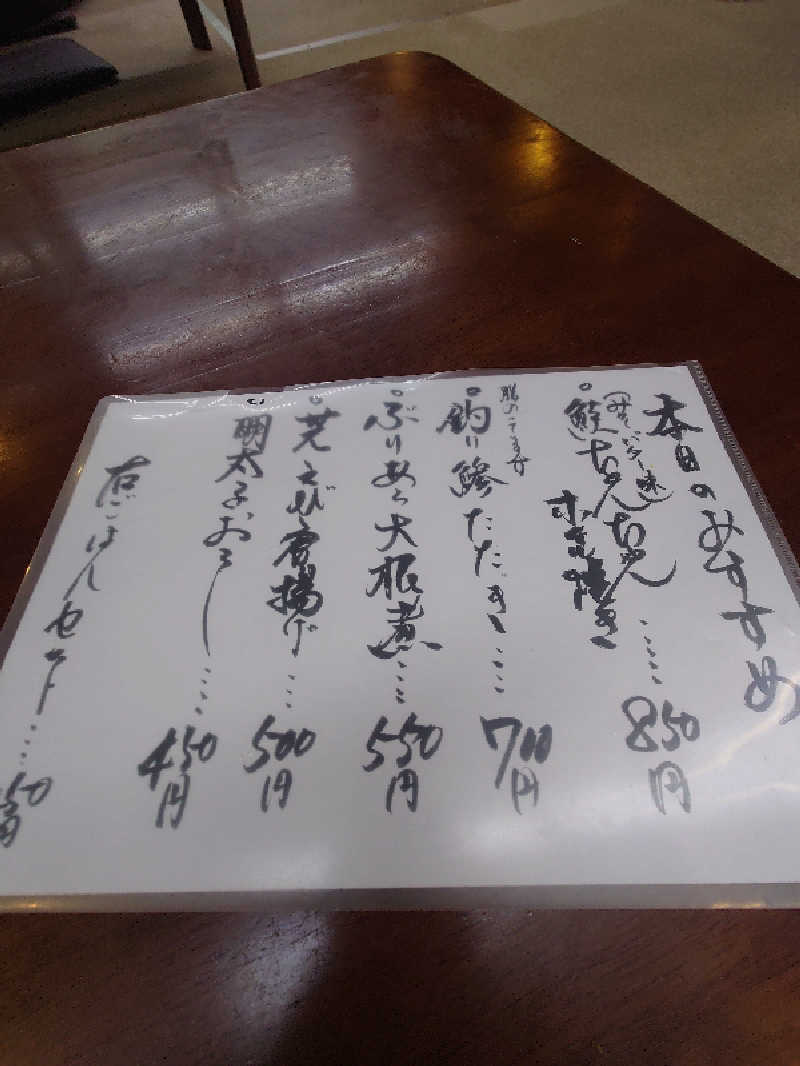 本日のおすすめ
(みそバター味)
鮭ちゃんちゃん
ホイル焼き
……850円
脂のってます
釣り鯵たたき……700円
ぶりあら大根煮……550円
芝えび唐揚げ……500円
明太子おろし……450円
右ごはんセット……50円